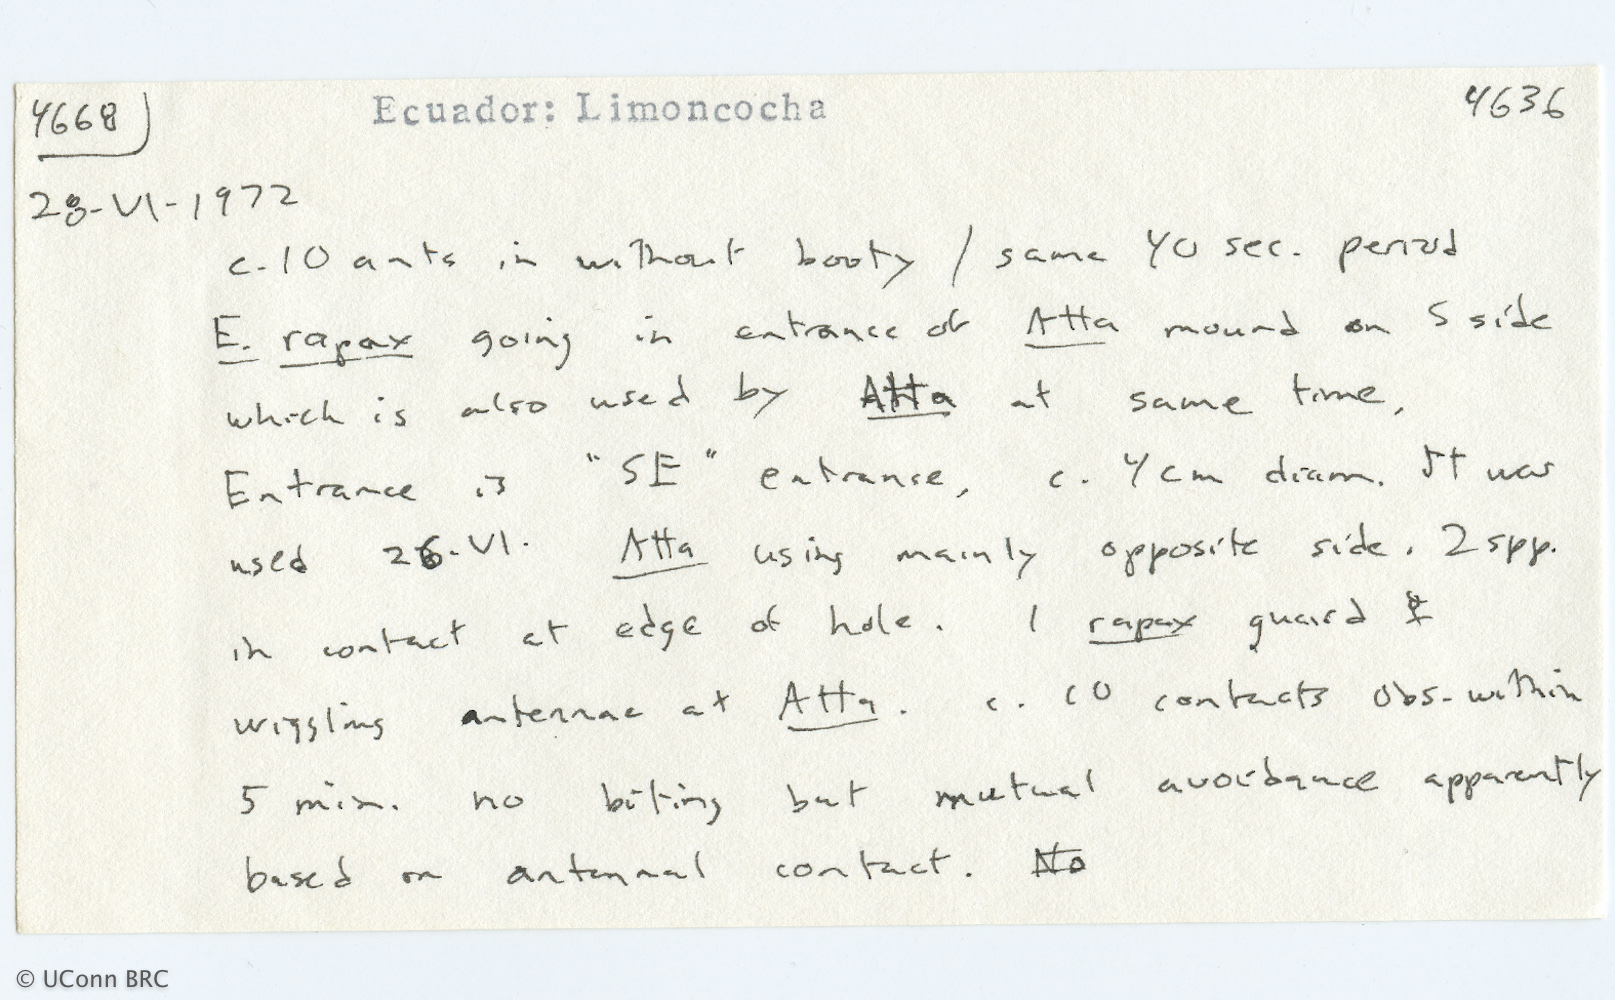 4668 Ecuador: Limoncocha 4636
28-VI-1972
c. 10 ants in without booty / same 40 sec. period
E. rapax going in entrance of Atta mound on S side
which is also used by Atta at same time,
Entrance is "SE" entrance, c. 4 cm diam. It was
used 26-VI. Atta using mainly opposite side. 2 spp.
in contact at edge of hole. 1 rapax guard
wiggling antennae at Atta. c. 10 contacts obs. within
5 min. no biting but mutual avoidance apparently
based on antennal contact. No
© UConn BRC